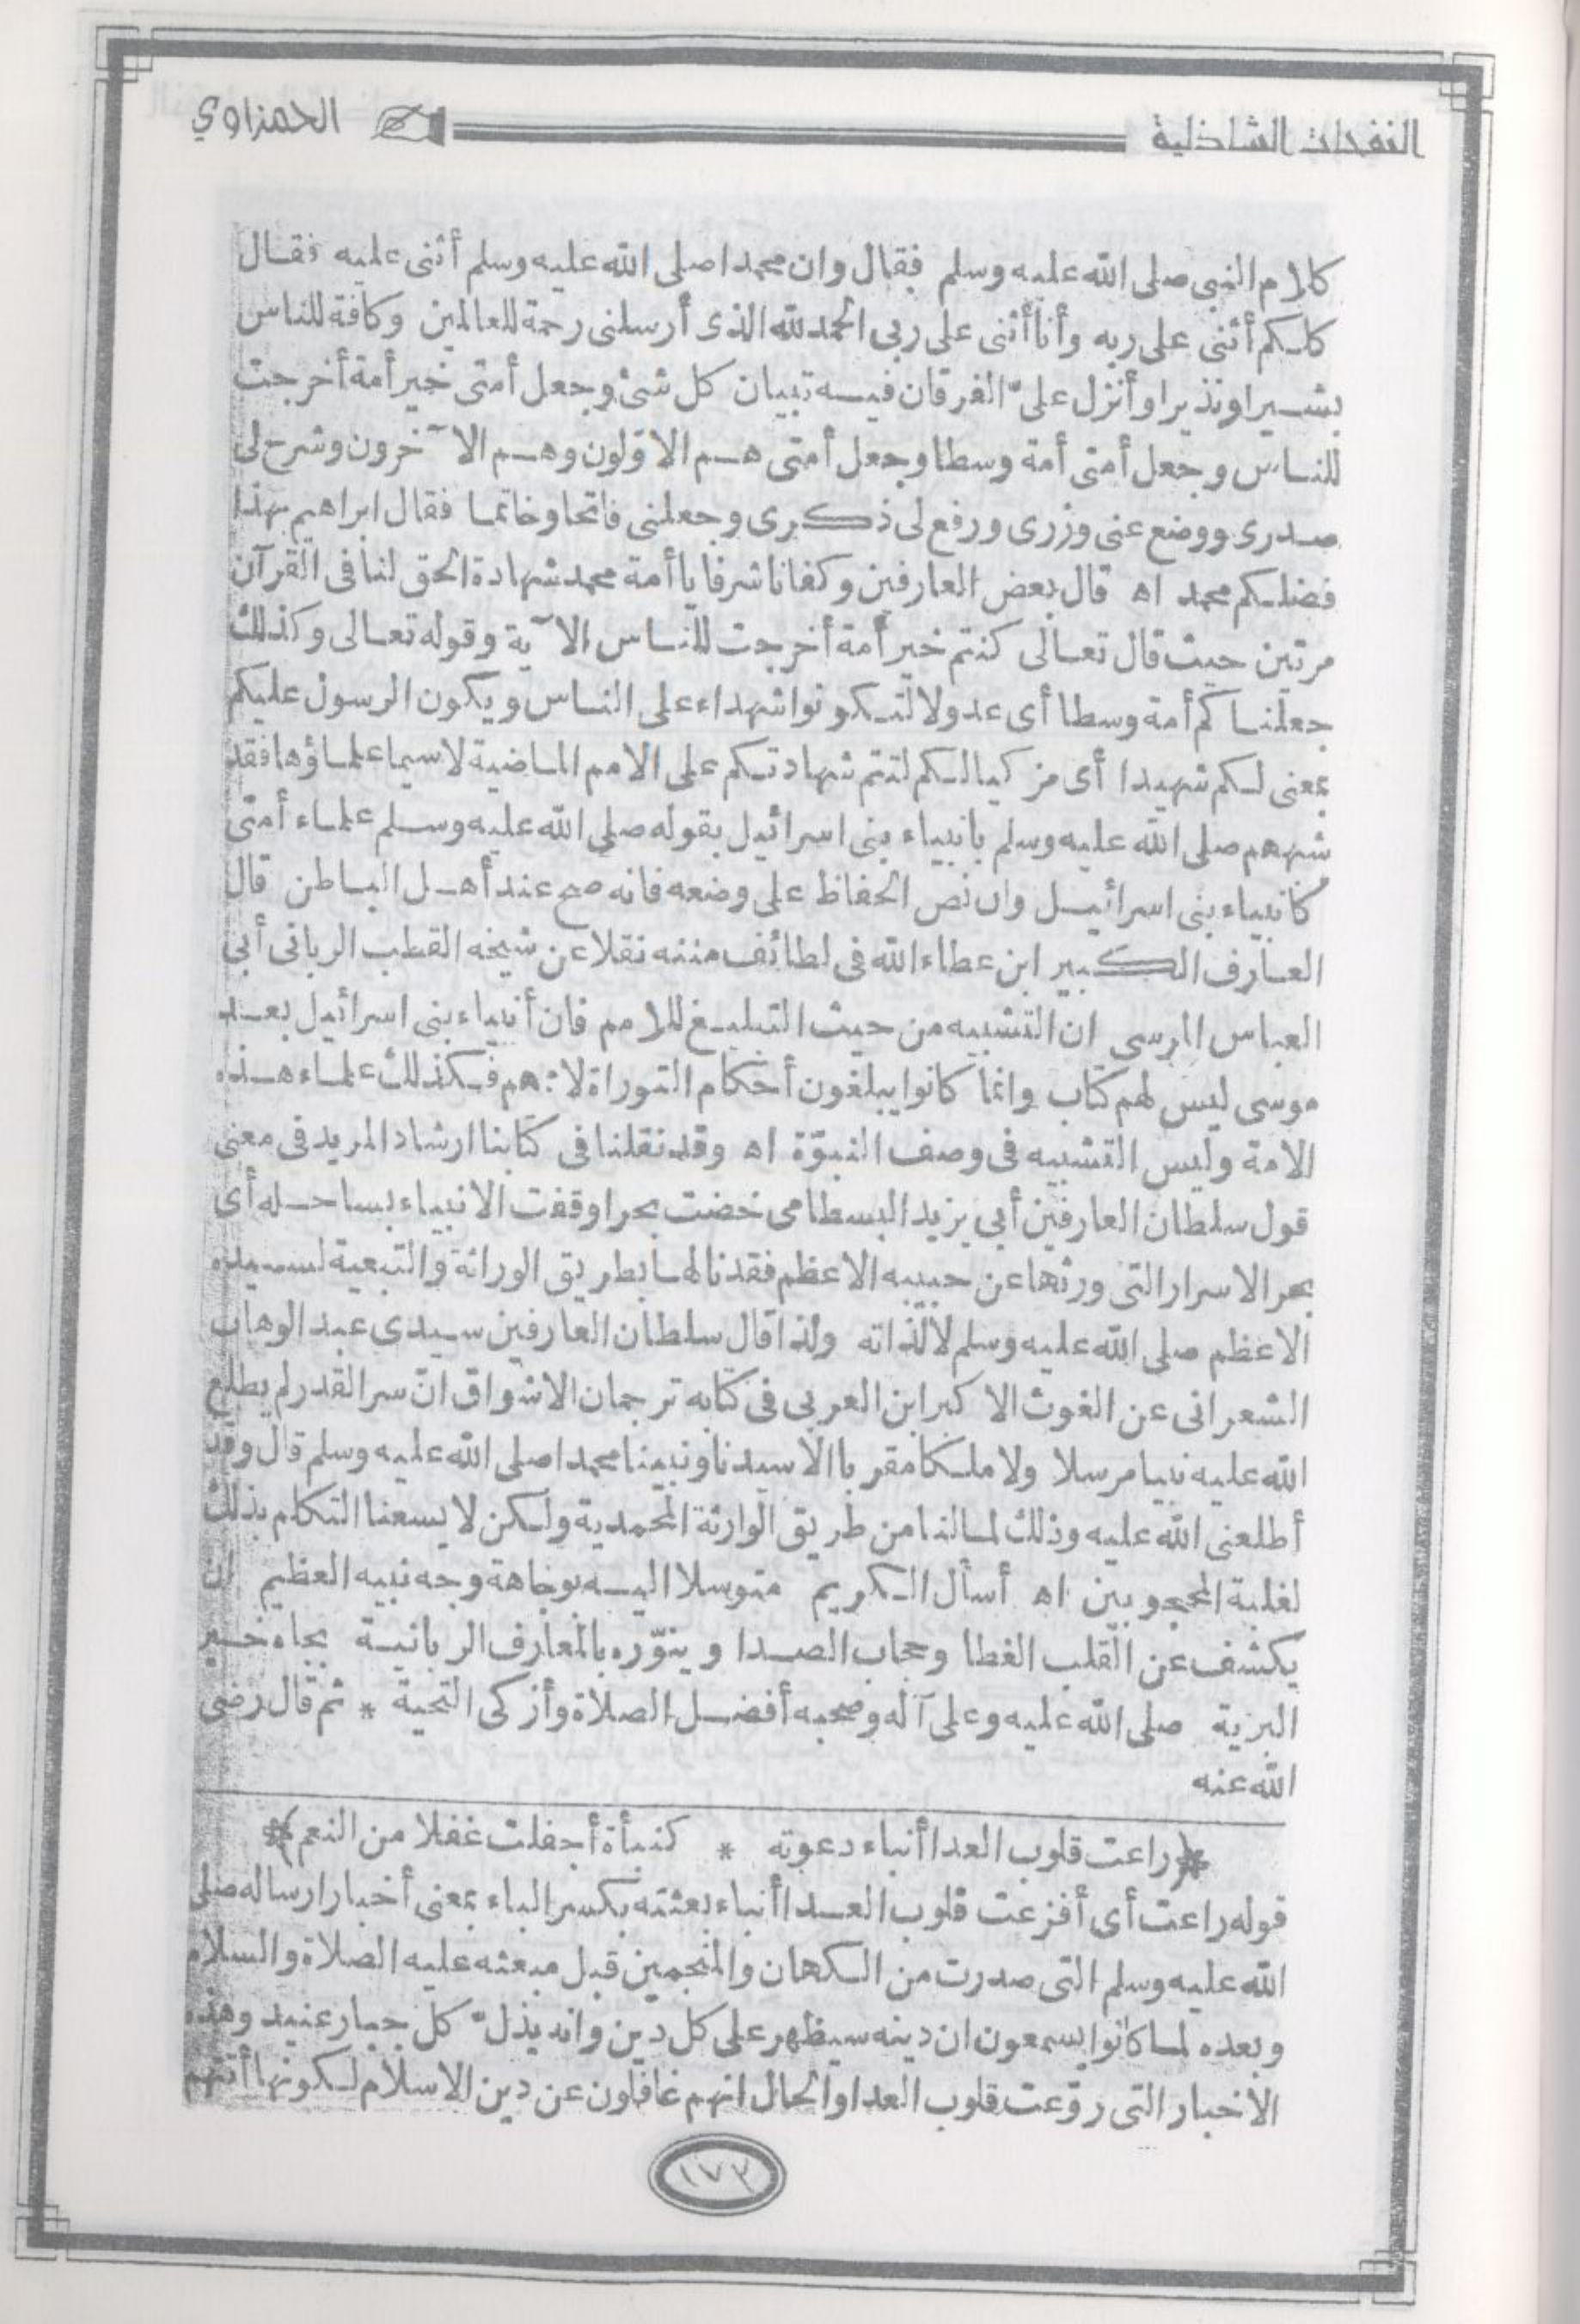 النفحات الشاذلية
الحمزاوي
كلام النبي صلى الله عليه وسلم فقال وان محمدا صلى الله عليه وسلم أثنى عليه فقال
كلكم أثنى على ربه وأنا أثنى على ربى الحمد لله الذى أرسلنى رحمة للعالمين وكافة للناس
بشيرا ونذيرا وأنزل علىّ الفرقان فيه تبيان كل شئ وجعل أمتى خير أمة أخرجت
للناس وجعل أمتى أمة وسطا وجعل أمتى هم الاوّلون وهم الآخرون وشرح لى
صدرى ووضع عنى وزرى ورفع لى ذكرى وجعلنى فاتحا وخاتما فقال ابراهيم بهذا
فضلكم محمد اه قال بعض العارفين وكفانا شرفا يا أمة محمد شهادة الحق لنا فى القرآن
مرتين حيث قال تعالى كنتم خير أمة أخرجت للناس الآية وقوله تعالى وكذلك
جعلناكم أمة وسطا أى عدولا لتكونوا شهداء على الناس ويكون الرسول عليكم
بمعنى لكم شهيدا أى مزكيا لكم لتتم شهادتكم على الامم الماضية لاسيما علماؤها فقد
شبههم صلى الله عليه وسلم بانبياء بنى اسرائيل بقوله صلى الله عليه وسلم علماء أمتى
كانبياء بنى اسرائيل وان نص الحفاظ على وضعه فانه صح عند أهل الباطن قال
العارف الكبير ابن عطاء الله فى لطائف مننه نقلا عن شيخه القطب الربانى أبى
العباس المرسى ان التشبيه من حيث التبليغ للامم فان أنبياء بنى اسرائيل بعد
موسى ليس لهم كتاب وانما كانوا يبلغون أحكام التوراة لاممهم فكذلك علماء هذه
الامة وليس التشبيه فى وصف النبوّة اه وقد نقلنا فى كتابنا ارشاد المريد فى معنى
قول سلطان العارفين أبى يزيد البسطامى خضت بحرا وقفت الانبياء بساحله أى
بحر الاسرار التى ورثها عن حبيبه الاعظم فقد نالها بطريق الوراثة والتبعية لسيده
الاعظم صلى الله عليه وسلم لا لذاته ولذا قال سلطان العارفين سيدى عبد الوهاب
الشعرانى عن الغوث الاكبر ابن العربى فى كتابه ترجمان الاشواق انّ سر القدر لم يطلع
الله عليه نبيا مرسلا ولا ملكا مقربا الا سيدنا ونبينا محمدا صلى الله عليه وسلم قال وقد
أطلعنى الله عليه وذلك لما لنا من طريق الوارثة المحمدية ولكن لا يسعنا التكلم بذلك
لغلبة المحجوبين اه أسأل الكريم متوسلا اليه بوجاهة وجه نبيه العظيم ان
يكشف عن القلب الغطا وحجاب الصدا وينوّره بالمعارف الربانية بجاه خير
البرية صلى الله عليه وعلى آله وصحبه أفضل الصلاة وأزكى التحية * ثم قال رضى
الله عنه
﴿راعت قلوب العدا أنباء دعوته * كنبأة أجفلت غفلا من النعم﴾
قوله راعت أى أفزعت قلوب العدا أنباء بعثته بكسر الباء بمعنى أخبار ارساله صلى
الله عليه وسلم التى صدرت من الكهان والمنجمين قبل مبعثه عليه الصلاة والسلام
وبعده لما كانوا يسمعون ان دينه سيظهر على كل دين وانه يذلّ كل جبار عنيد وهذه
الاخبار التى روّعت قلوب العدا والحال انهم غافلون عن دين الاسلام لكونها أتتهم
١٧٣